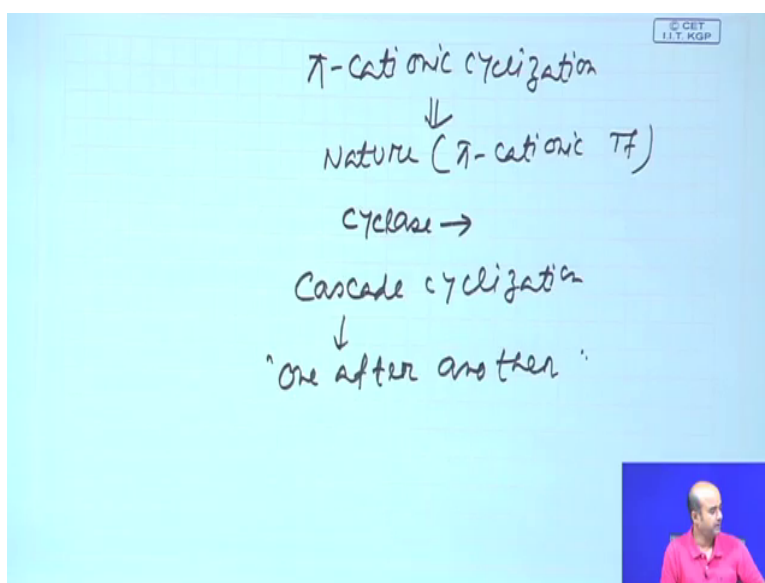 © CET
I.I.T. KGP
π-cationic cyclization
⇓
Nature (π-cationic Tf)
cyclase →
Cascade cyclization
↓
"one after another"